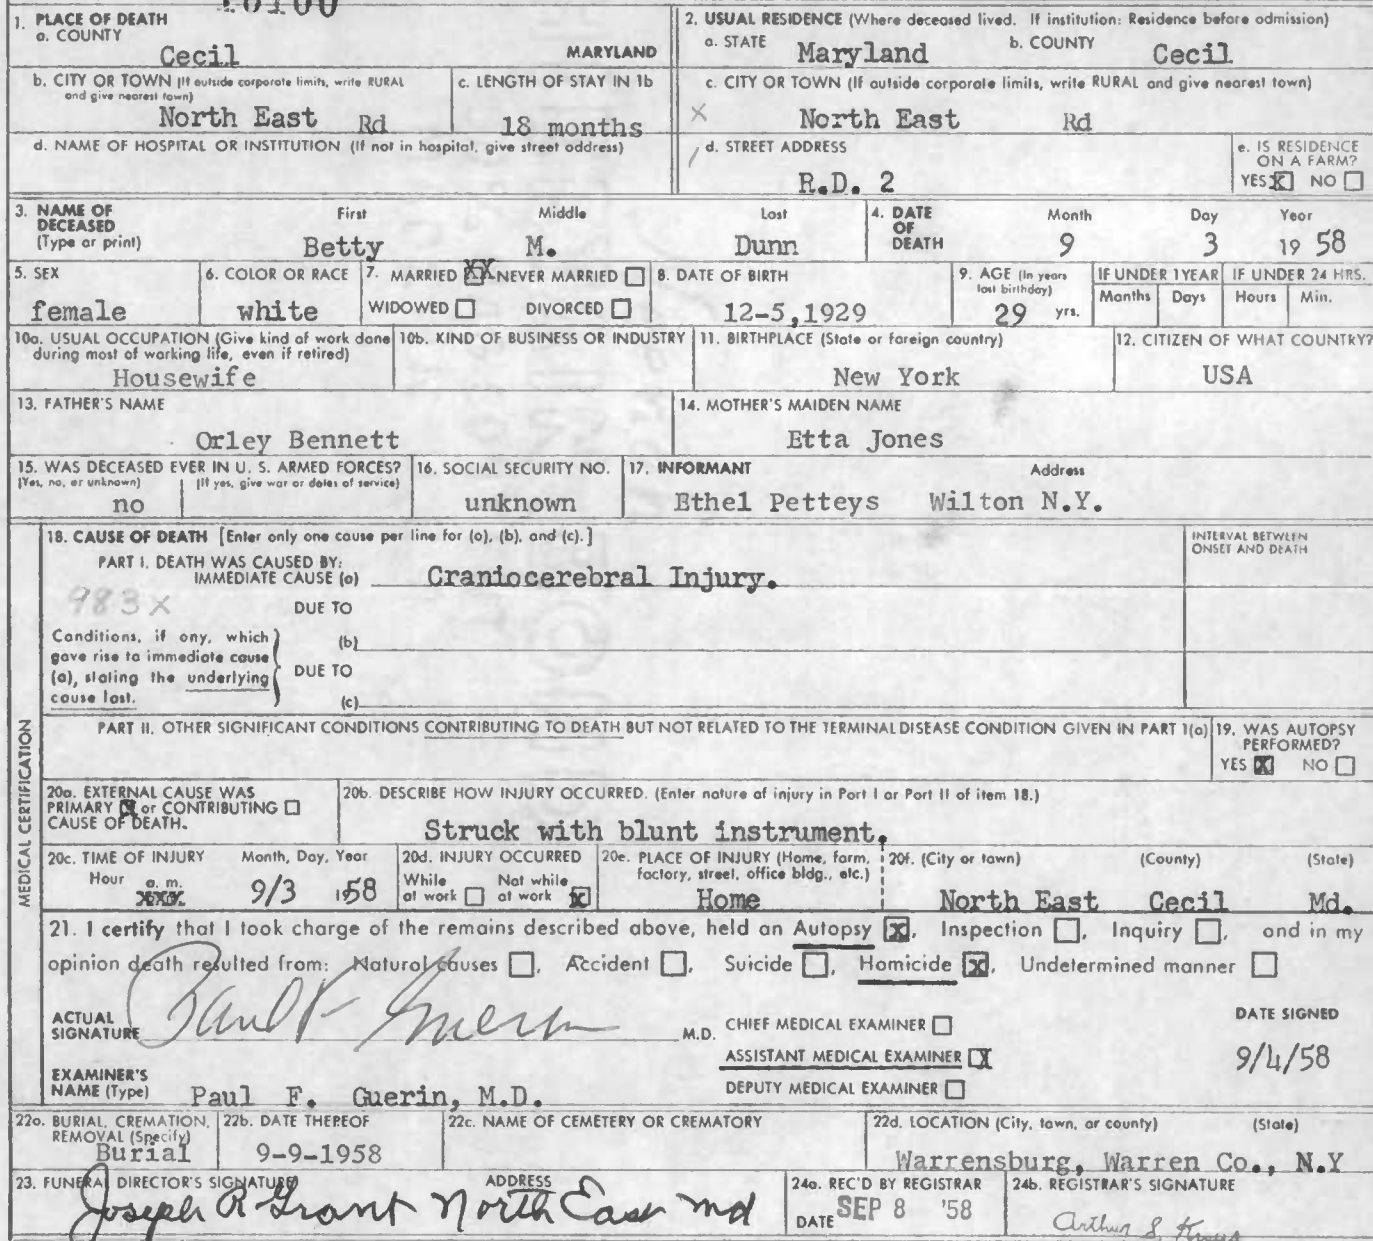 1. PLACE OF DEATH
a. COUNTY
Cecil MARYLAND
2. USUAL RESIDENCE (Where deceased lived. If institution: Residence before admission)
a. STATE Maryland b. COUNTY Cecil
b. CITY OR TOWN (If outside corporate limits, write RURAL and give nearest town)
North East Rd
c. LENGTH OF STAY IN 1b
18 months
c. CITY OR TOWN (If outside corporate limits, write RURAL and give nearest town)
North East Rd
d. NAME OF HOSPITAL OR INSTITUTION (If not in hospital, give street address)
d. STREET ADDRESS
R.D. 2
e. IS RESIDENCE ON A FARM?
YES X NO
3. NAME OF DECEASED (Type or print)
First Middle Last
Betty M. Dunn
4. DATE OF DEATH
Month Day Year
9 3 19 58
5. SEX
female
6. COLOR OR RACE
white
7. MARRIED XX NEVER MARRIED
WIDOWED DIVORCED
8. DATE OF BIRTH
12-5,1929
9. AGE (In years last birthday)
29 yrs.
IF UNDER 1 YEAR
Months Days
IF UNDER 24 HRS.
Hours Min.
10a. USUAL OCCUPATION (Give kind of work done during most of working life, even if retired)
Housewife
10b. KIND OF BUSINESS OR INDUSTRY
11. BIRTHPLACE (State or foreign country)
New York
12. CITIZEN OF WHAT COUNTRY?
USA
13. FATHER'S NAME
Orley Bennett
14. MOTHER'S MAIDEN NAME
Etta Jones
15. WAS DECEASED EVER IN U. S. ARMED FORCES?
(Yes, no, or unknown) (If yes, give war or dates of service)
no
16. SOCIAL SECURITY NO.
unknown
17. INFORMANT Address
Ethel Petteys Wilton N.Y.
MEDICAL CERTIFICATION
18. CAUSE OF DEATH [Enter only one cause per line for (a), (b), and (c).]
INTERVAL BETWEEN ONSET AND DEATH
PART I. DEATH WAS CAUSED BY:
IMMEDIATE CAUSE (a) Craniocerebral Injury.
983X
DUE TO
Conditions, if any, which gave rise to immediate cause (a), stating the underlying cause last.
(b)
DUE TO
(c)
PART II. OTHER SIGNIFICANT CONDITIONS CONTRIBUTING TO DEATH BUT NOT RELATED TO THE TERMINAL DISEASE CONDITION GIVEN IN PART 1(a)
19. WAS AUTOPSY PERFORMED?
YES X NO
20a. EXTERNAL CAUSE WAS
PRIMARY X or CONTRIBUTING
CAUSE OF DEATH.
20b. DESCRIBE HOW INJURY OCCURRED. (Enter nature of injury in Part I or Part II of item 18.)
Struck with blunt instrument.
20c. TIME OF INJURY Month, Day, Year
Hour a. m.
9/3 1958
20d. INJURY OCCURRED
While at work Not while at work X
20e. PLACE OF INJURY (Home, farm, factory, street, office bldg., etc.)
Home
20f. (City or town) (County) (State)
North East Cecil Md.
21. I certify that I took charge of the remains described above, held an Autopsy X, Inspection , Inquiry , and in my
opinion death resulted from: Natural causes , Accident , Suicide , Homicide X, Undetermined manner
ACTUAL SIGNATURE Paul F Guerin M.D.
CHIEF MEDICAL EXAMINER
ASSISTANT MEDICAL EXAMINER X
DEPUTY MEDICAL EXAMINER
DATE SIGNED
9/4/58
EXAMINER'S NAME (Type) Paul F. Guerin, M.D.
22a. BURIAL, CREMATION, REMOVAL (Specify)
Burial
22b. DATE THEREOF
9-9-1958
22c. NAME OF CEMETERY OR CREMATORY
22d. LOCATION (City, town, or county) (State)
Warrensburg, Warren Co., N.Y
23. FUNERAL DIRECTOR'S SIGNATURE ADDRESS
Joseph R Grant North East Md
24a. REC'D BY REGISTRAR
DATE SEP 8 '58
24b. REGISTRAR'S SIGNATURE
Arthur S.